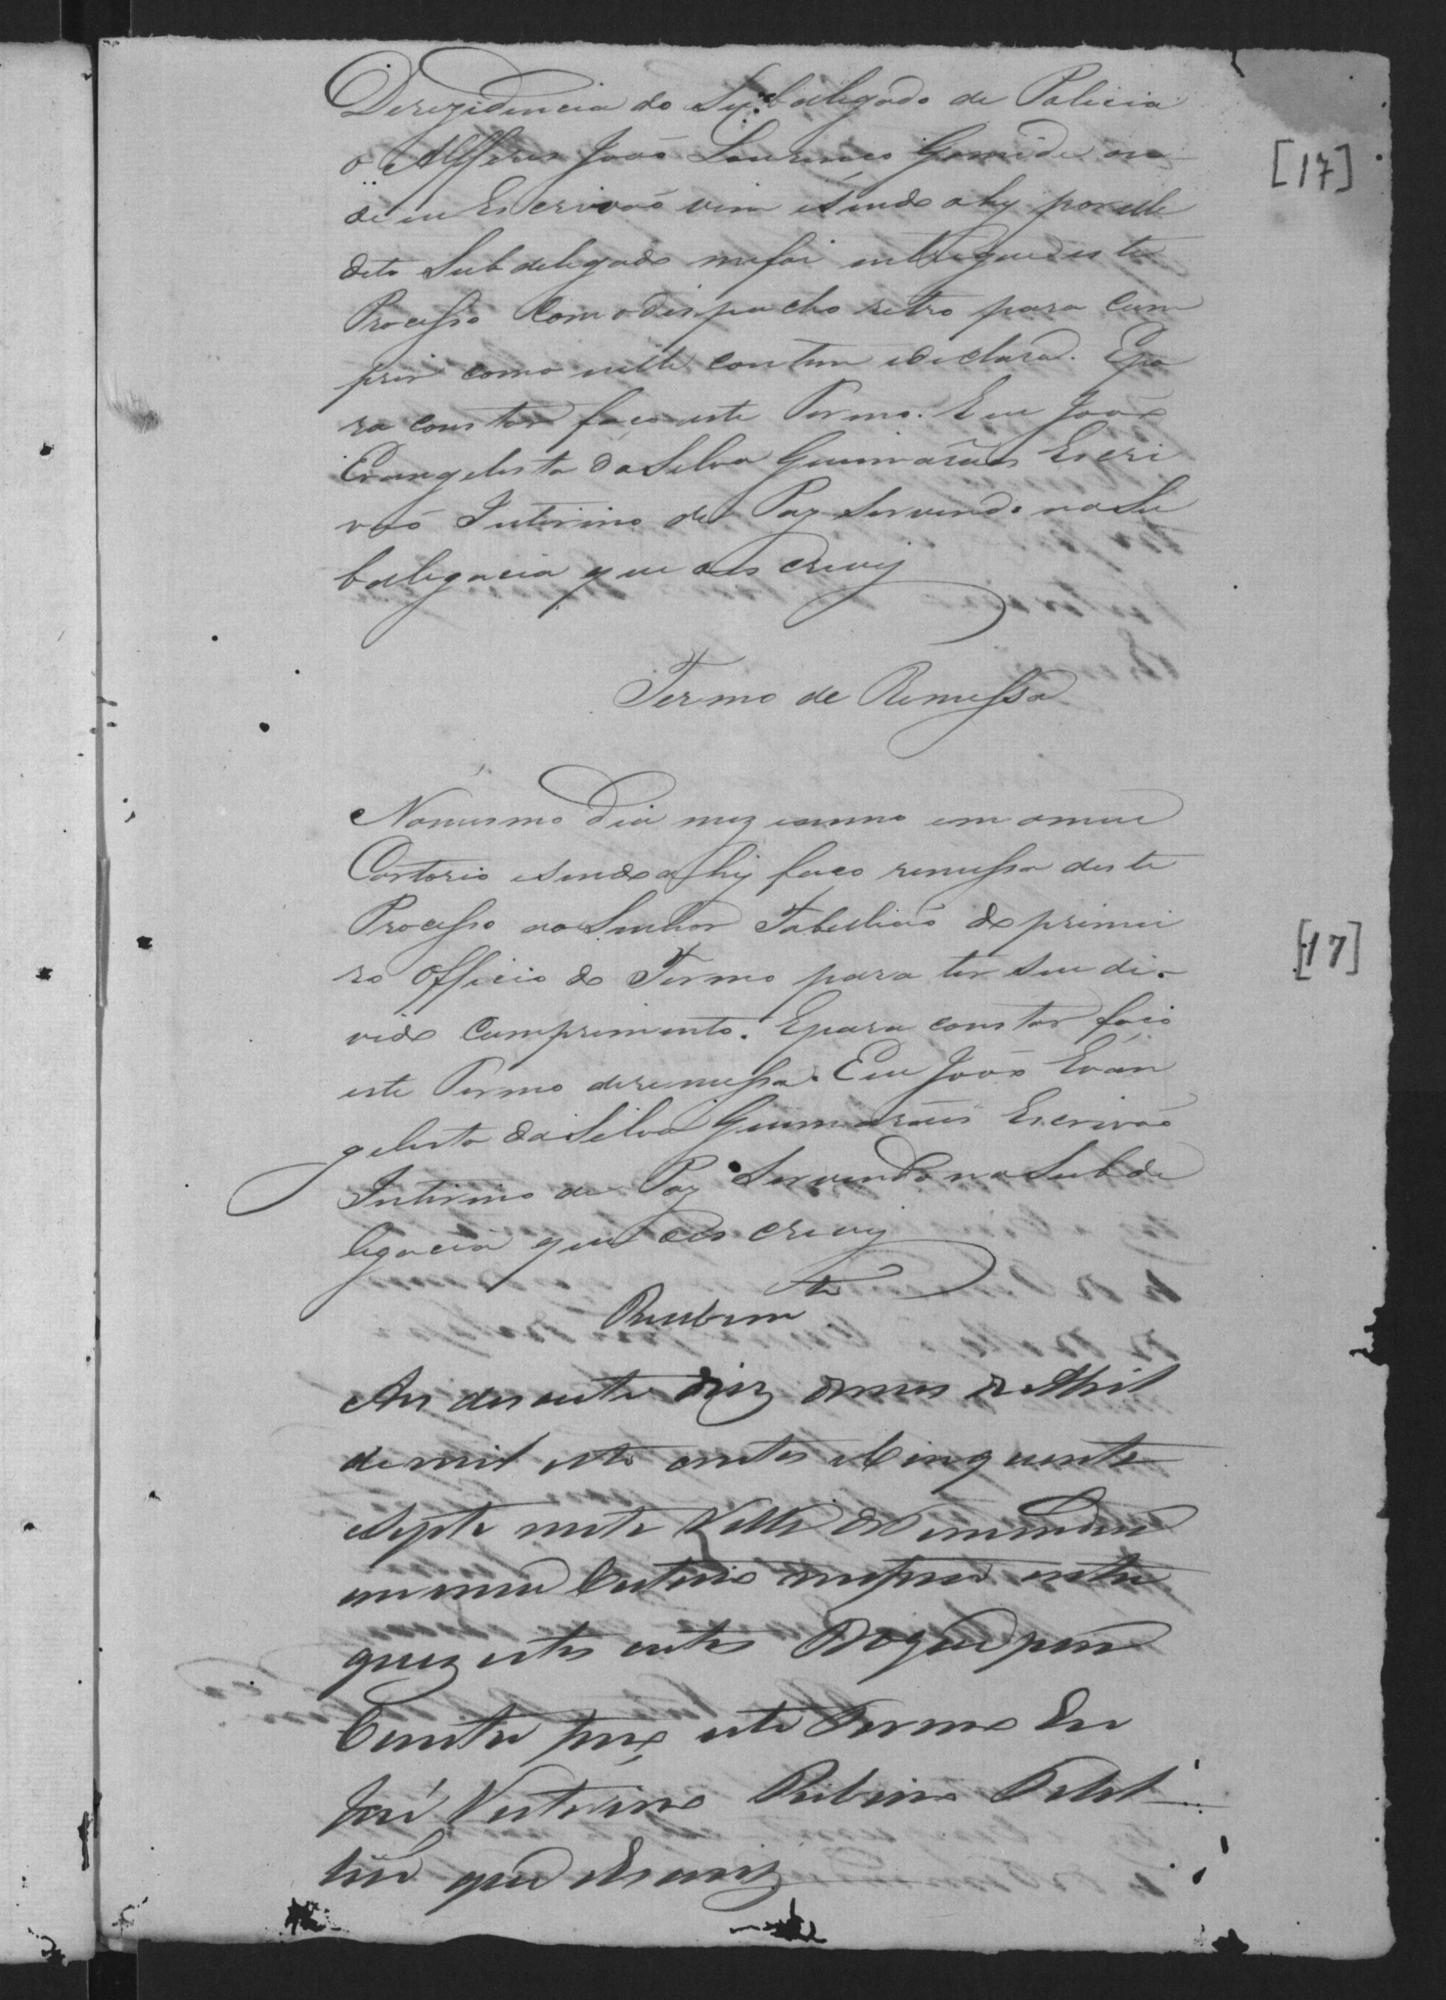 Derezidencia do Subdelegado de Policia
o Alferes João Lourenço Gomide on
de eu Escrivão vim esendo ahy por elle
dito Subdelegado mefoi entregue deste
Processo com odespacho retro para cum
prir como nelle contem edeclara. Epa
ra constar faço este Termo. Eu João
Evangelista daSilva Guimarães Escri
vão Interino de Paz Servindo naSu
balegacia que oescrevy
Termo de Remessa
Nomesmo dia mez eanno em omeu
Cartorio esendo ahy faço remessa deste
Processo ao Senhor Tabelião do primei
ro Officio do Termo para ter seu di-
vido Cumprimento. Epara constar faço
este Termo deremessa. Eu João Evan
gelista daSilva Guimarães Escrivão
Interino de Paz Servindo na Subde
legacia que oescrevy
Recebim.to
Aos desasete dias domes de Abril
demil oito centos eCinquenta
eSepte nesta Villa
em meu Cartorio me
estes autos Do que para
Constar fiz este Termo Eu
José Victorino Ribeiro Tabel
lião que oEscrevy
[17]
[17]